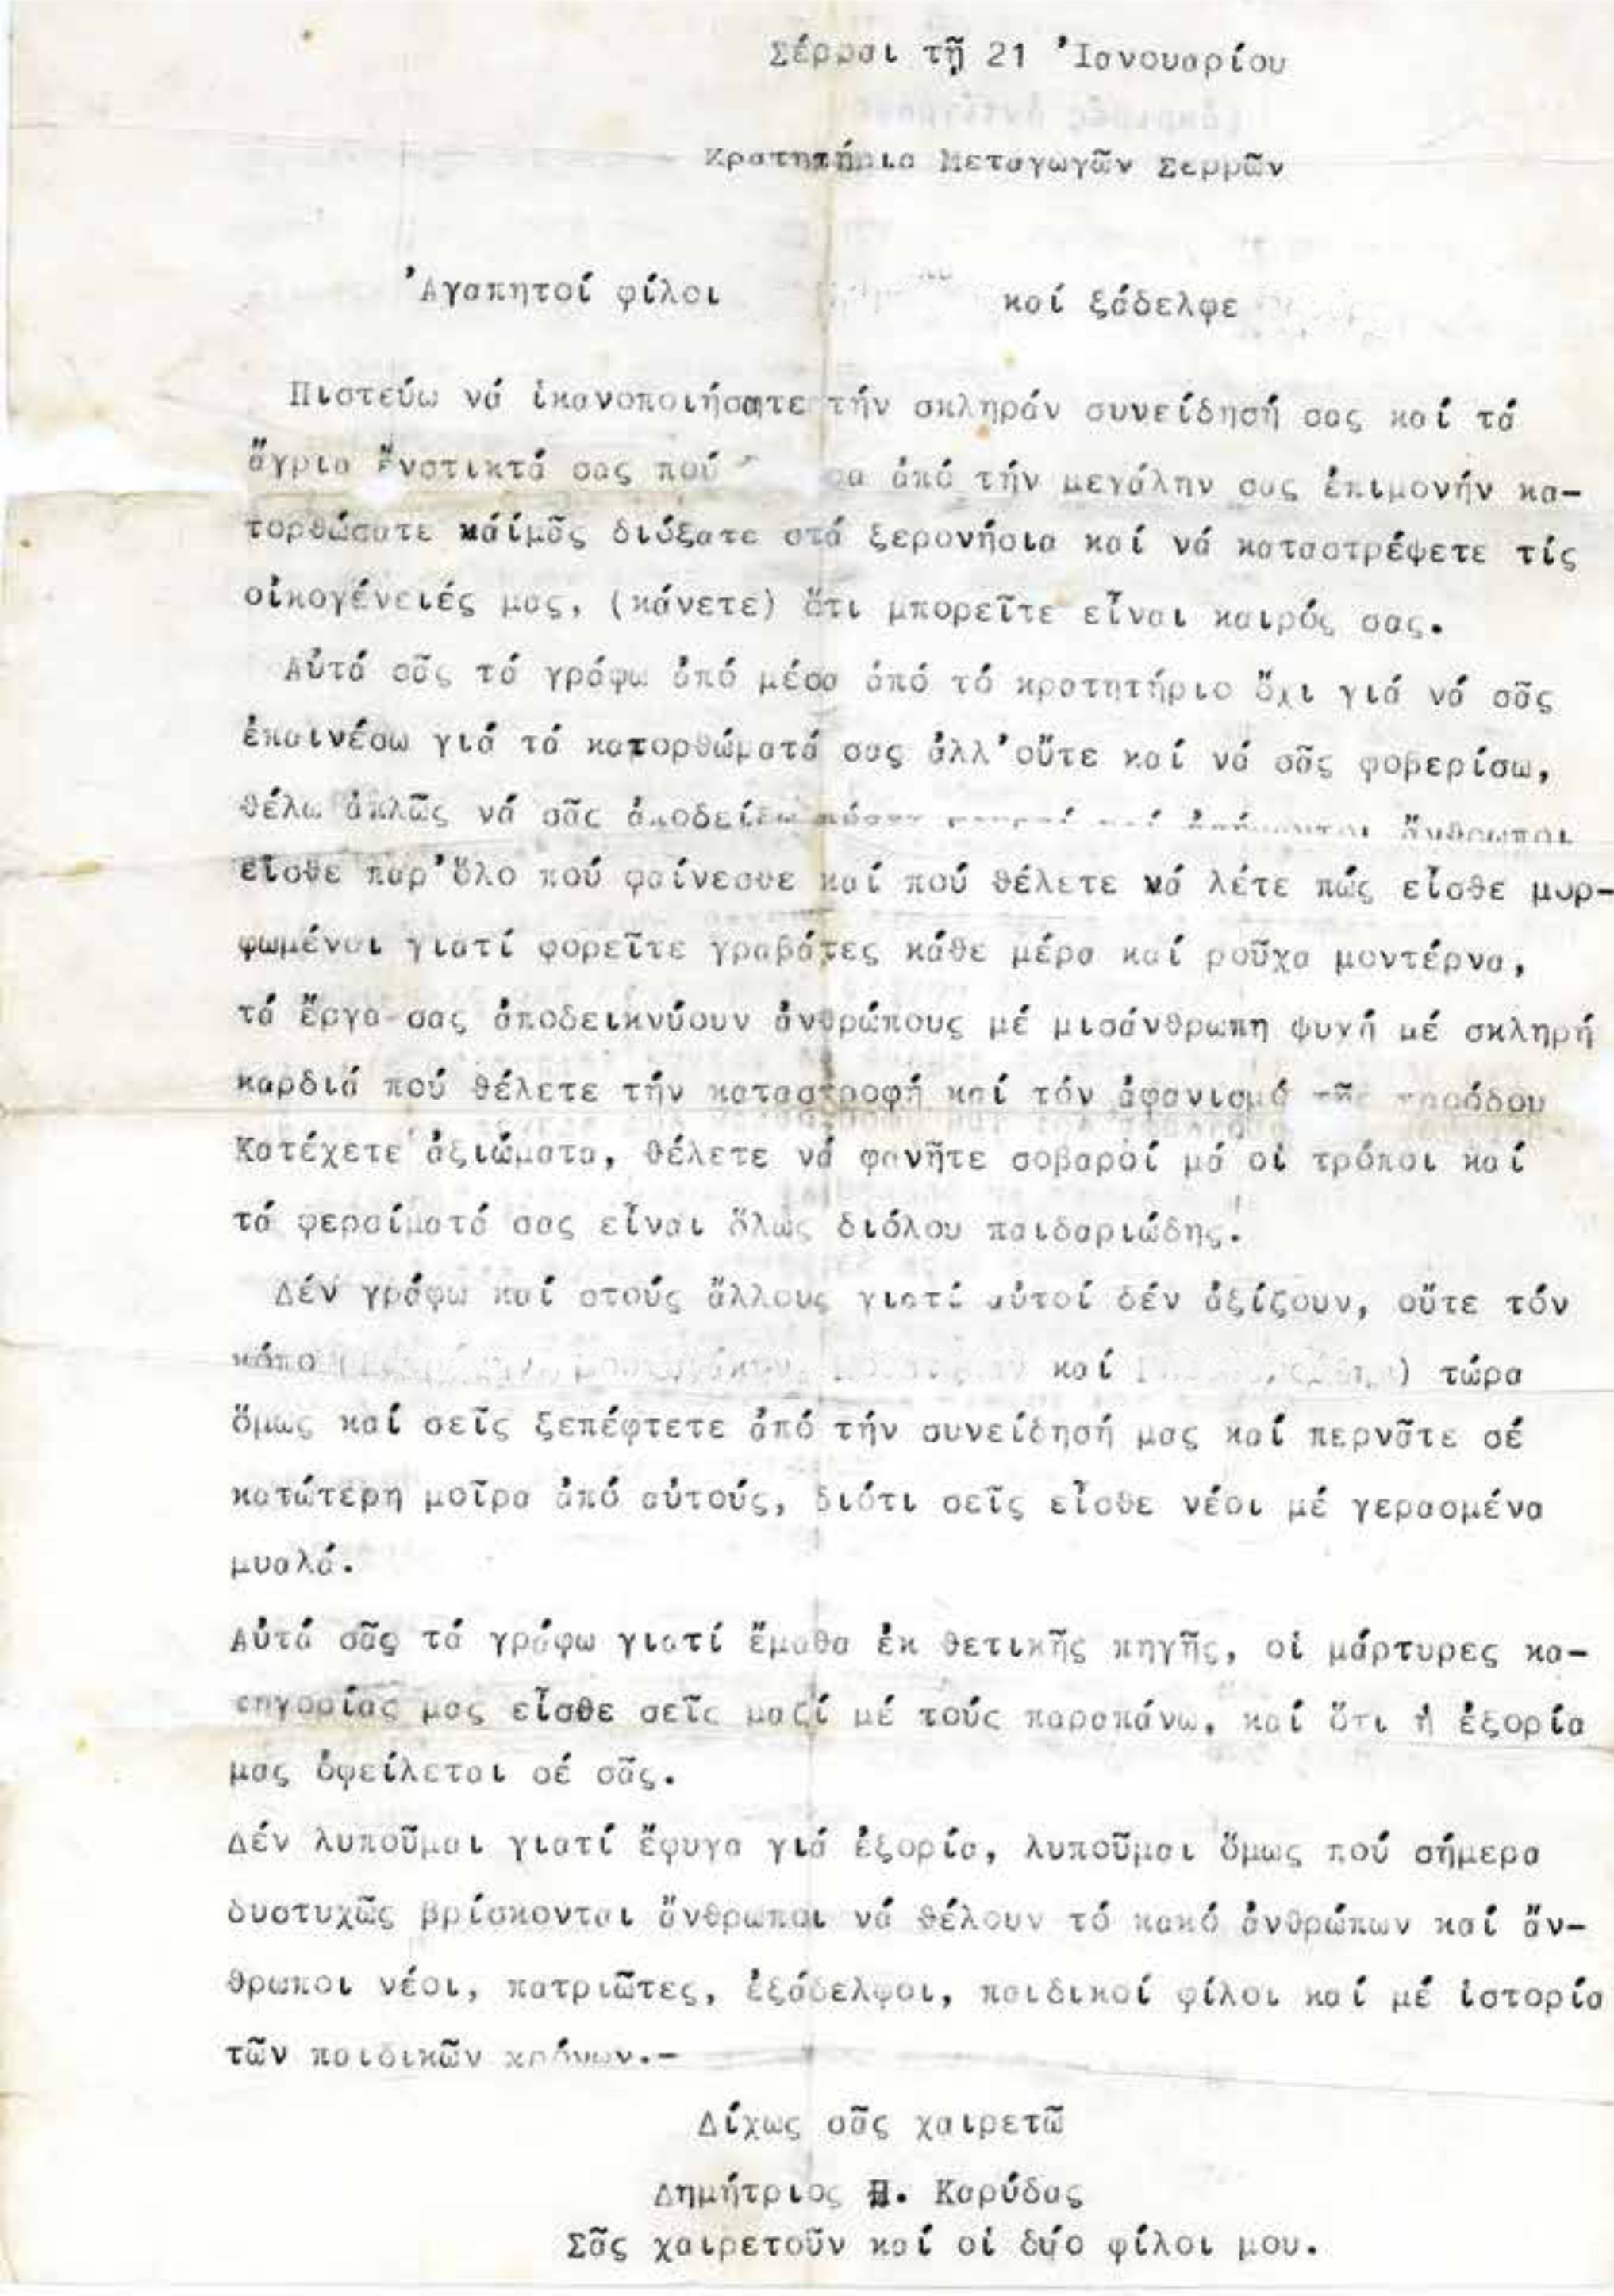 Σέρραι τῇ 21 Ἰανουαρίου
Κρατητήρια Μεταγωγῶν Σερρῶν
Ἀγαπητοί φίλοι καί ξάδελφε
Πιστεύω νά ἱκανοποιήσατε τήν σκληράν συνείδησή σας καί τά
ἄγρια ἔνστικτά σας πού ἀπό τήν μεγάλην σας ἐπιμονήν κα-
τορθώσατε κάίμᾶς διώξατε στά ξερονήσια καί νά καταστρέψετε τίς
οἰκογένειές μας, (κάνετε) ὅτι μπορεῖτε εἶναι καιρός σας.
Αὐτά σᾶς τά γράφω ἀπό μέσα ἀπό τό κρατητήριο ὄχι γιά νά σᾶς
ἐπαινέσω γιά τά κατορθώματά σας ἀλλ'οὔτε καί νά σᾶς φοβερίσω,
θέλω ἁπλῶς νά σᾶς ἀποδείξω πόσον καί ἄνθρωποι
εἶσθε παρ'ὅλο πού φαίνεσθε καί πού θέλετε νά λέτε πώς εἶσθε μορ-
φωμένοι γιατί φορεῖτε γραβάτες κάθε μέρα καί ροῦχα μοντέρνα,
τά ἔργα σας ἀποδεικνύουν ἀνθρώπους μέ μισάνθρωπη ψυχή μέ σκληρή
καρδιά πού θέλετε τήν καταστροφή καί τόν ἀφανισμό τῆς
Κατέχετε ἀξιώματα, θέλετε νά φανῆτε σοβαροί μά οἱ τρόποι καί
τά φερσίματά σας εἶναι ὅλως διόλου παιδαριώδης.
Δέν γράφω καί στούς ἄλλους γιατί αὐτοί δέν ἀξίζουν, οὔτε τόν
κόπο ( καί ) τώρα
ὅμως καί σεῖς ξεπέφτετε ἀπό τήν συνείδησή μας καί περνᾶτε σέ
κατώτερη μοῖρα ἀπό αὐτούς, διότι σεῖς εἶσθε νέοι μέ γερασμένα
μυαλά.
Αὐτά σᾶς τά γράφω γιατί ἔμαθα ἐκ θετικῆς πηγῆς, οἱ μάρτυρες κα-
τηγορίας μας εἶσθε σεῖς μαζί μέ τούς παραπάνω, καί ὅτι ἡ ἐξορία
μας ὀφείλεται σέ σᾶς.
Δέν λυποῦμαι γιατί ἔφυγα γιά ἐξορία, λυποῦμαι ὅμως πού σήμερα
δυστυχῶς βρίσκονται ἄνθρωποι νά θέλουν τό κακό ἀνθρώπων καί ἄν-
θρωποι νέοι, πατριῶτες, ἐξάδελφοι, παιδικοί φίλοι καί μέ ἱστορία
τῶν παιδικῶν χρόνων.-
Δίχως σᾶς χαιρετῶ
Δημήτριος Π. Καρύδας
Σᾶς χαιρετοῦν καί οἱ δύο φίλοι μου.